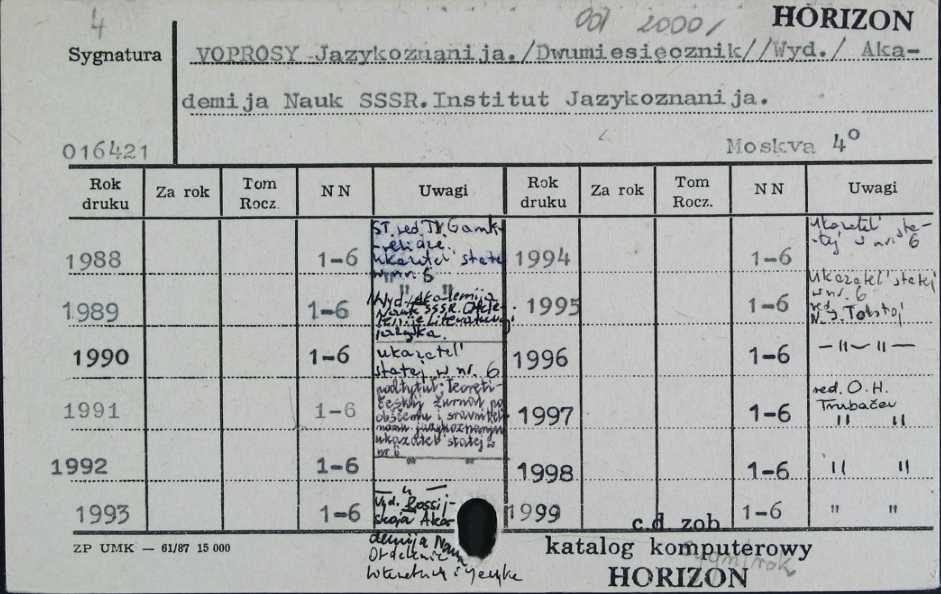 4
od 2000/
HORIZON
Sygnatura
VOPROSY Jazykoznanija./Dwumiesięcznik//Wyd./ Aka-
demija Nauk SSSR.Institut Jazykoznanija.
016421
Moskva 4°
Rok druku Za rok Tom Rocz. N N Uwagi Rok druku Za rok Tom Rocz. N N Uwagi
1988 1-6 ST. red. T.V. Gamk-
-relidze
ukazatel' statej
w nr. 6
1994 1-6 Ukazatel' sta-
tej w nr. 6
1989 1-6 " "
Wyd. Akademija
Nauk SSSR.
Literatury i
jazyka.
1995 1-6 Ukazatel' statej
w nr. 6
red.
N. I. Tolstoj
1990 1-6 ukazatel'
statej w nr. 6
1996 1-6 — " — " —
1991 1-6 podtytuł: Teoreti-
českij žurnal po
obščemu i sravnitel'
nomu jazykoznaniju
ukazatel' statej w
nr 6
1997 1-6 red. O. H.
Trubačev
" "
1992 1-6 " "
1998 1-6 " "
1993 1-6 — " —
Wyd. Rossij-
skaja Aka-
demija Nauk
Otdelenie
Literatury i jazyka
1999 1-6 " "
c.d. zob.
katalog komputerowy
HORIZON
ZP UMK — 61/87 15 000